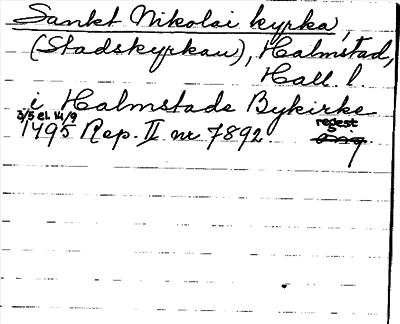 Sankt Nikolai kyrka,
(Stadskyrkan), Halmstad,
Hall. l.
i Halmstade Bykirke
3/5 el. 14/9 regest
1495 Rep. II nr 7892 orig